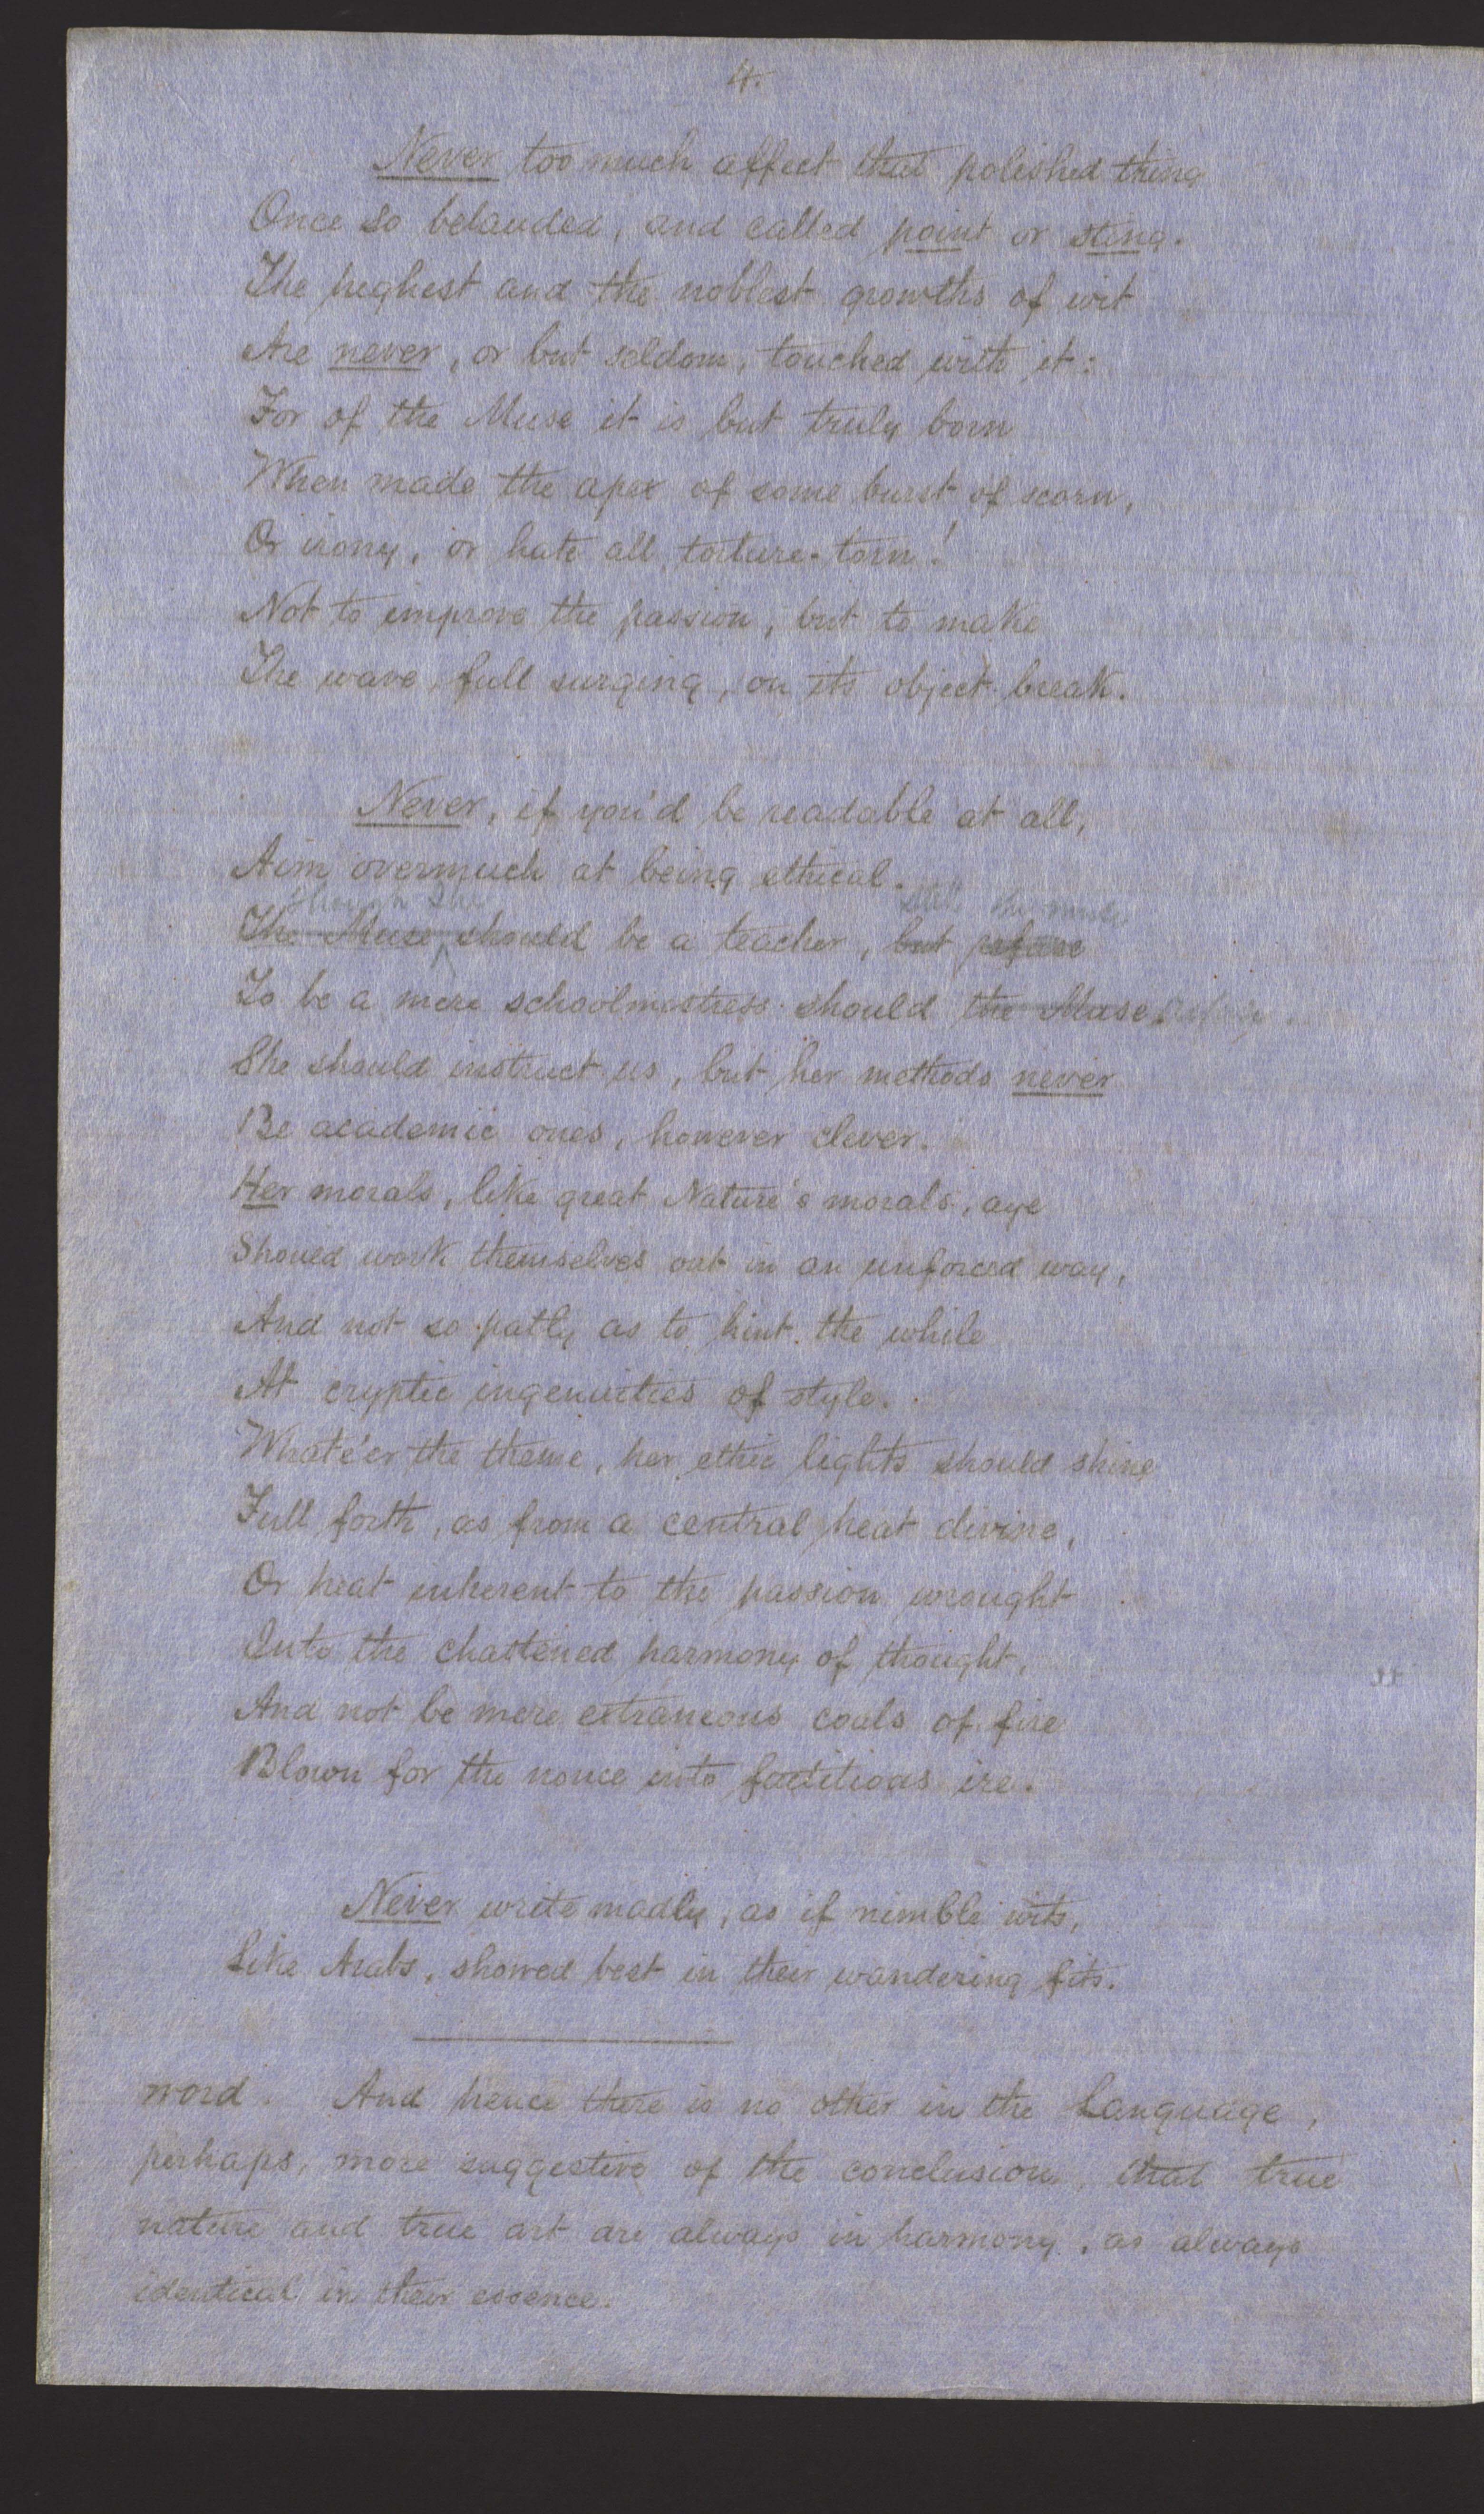 4.
Never too much affect that polished thing
Once so belauded, and called point or sting.
The highest and the noblest growths of wit
Are never, or but seldom, touched with it:
For of the Muse it is but truly born
When made the apex of some burst of scorn,
Or irony, or hate all torture-torn!
Not to improve the passion, but to make
The wave, full surging, on its object break.
Never, if you'd be readable at all,
Aim overmuch at being ethical.
Though She
The Muse should be a teacher, but refuse
To be a mere schoolmistress should the Muse.
She should instruct us, but her methods never
Be academic ones, however clever.
Her morals, like great Nature's morals, aye
Should work themselves out in an unforced way,
And not so patly as to hint the while
At cryptic ingenuities of style.
Whate'er the theme, her ethic lights should shine
Full forth, as from a central heat divine,
Or heat inherent to the passion wrought
Into the chastened harmony of thought,
And not be mere extraneous coals of fire
Blown for the nonce into factitious ire.
Never write madly, as if nimble wits,
Like Arabs, showed best in their wandering fits.
word. And hence there is no other in the Language,
perhaps, more suggestive of the conclusion, that true
nature and true art are always in harmony, as always
identical in their essence.